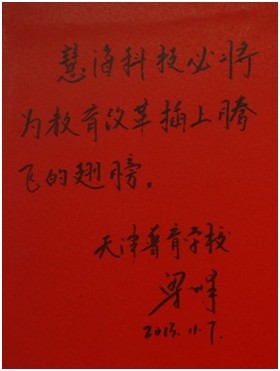 慧海科技必将
为教育改革插上腾
飞的翅膀。
天津普育学校
梁峰
2013.11.7.